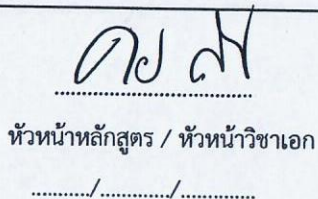 ................................
หัวหน้าหลักสูตร / หัวหน้าวิชาเอก
.........../............/.............